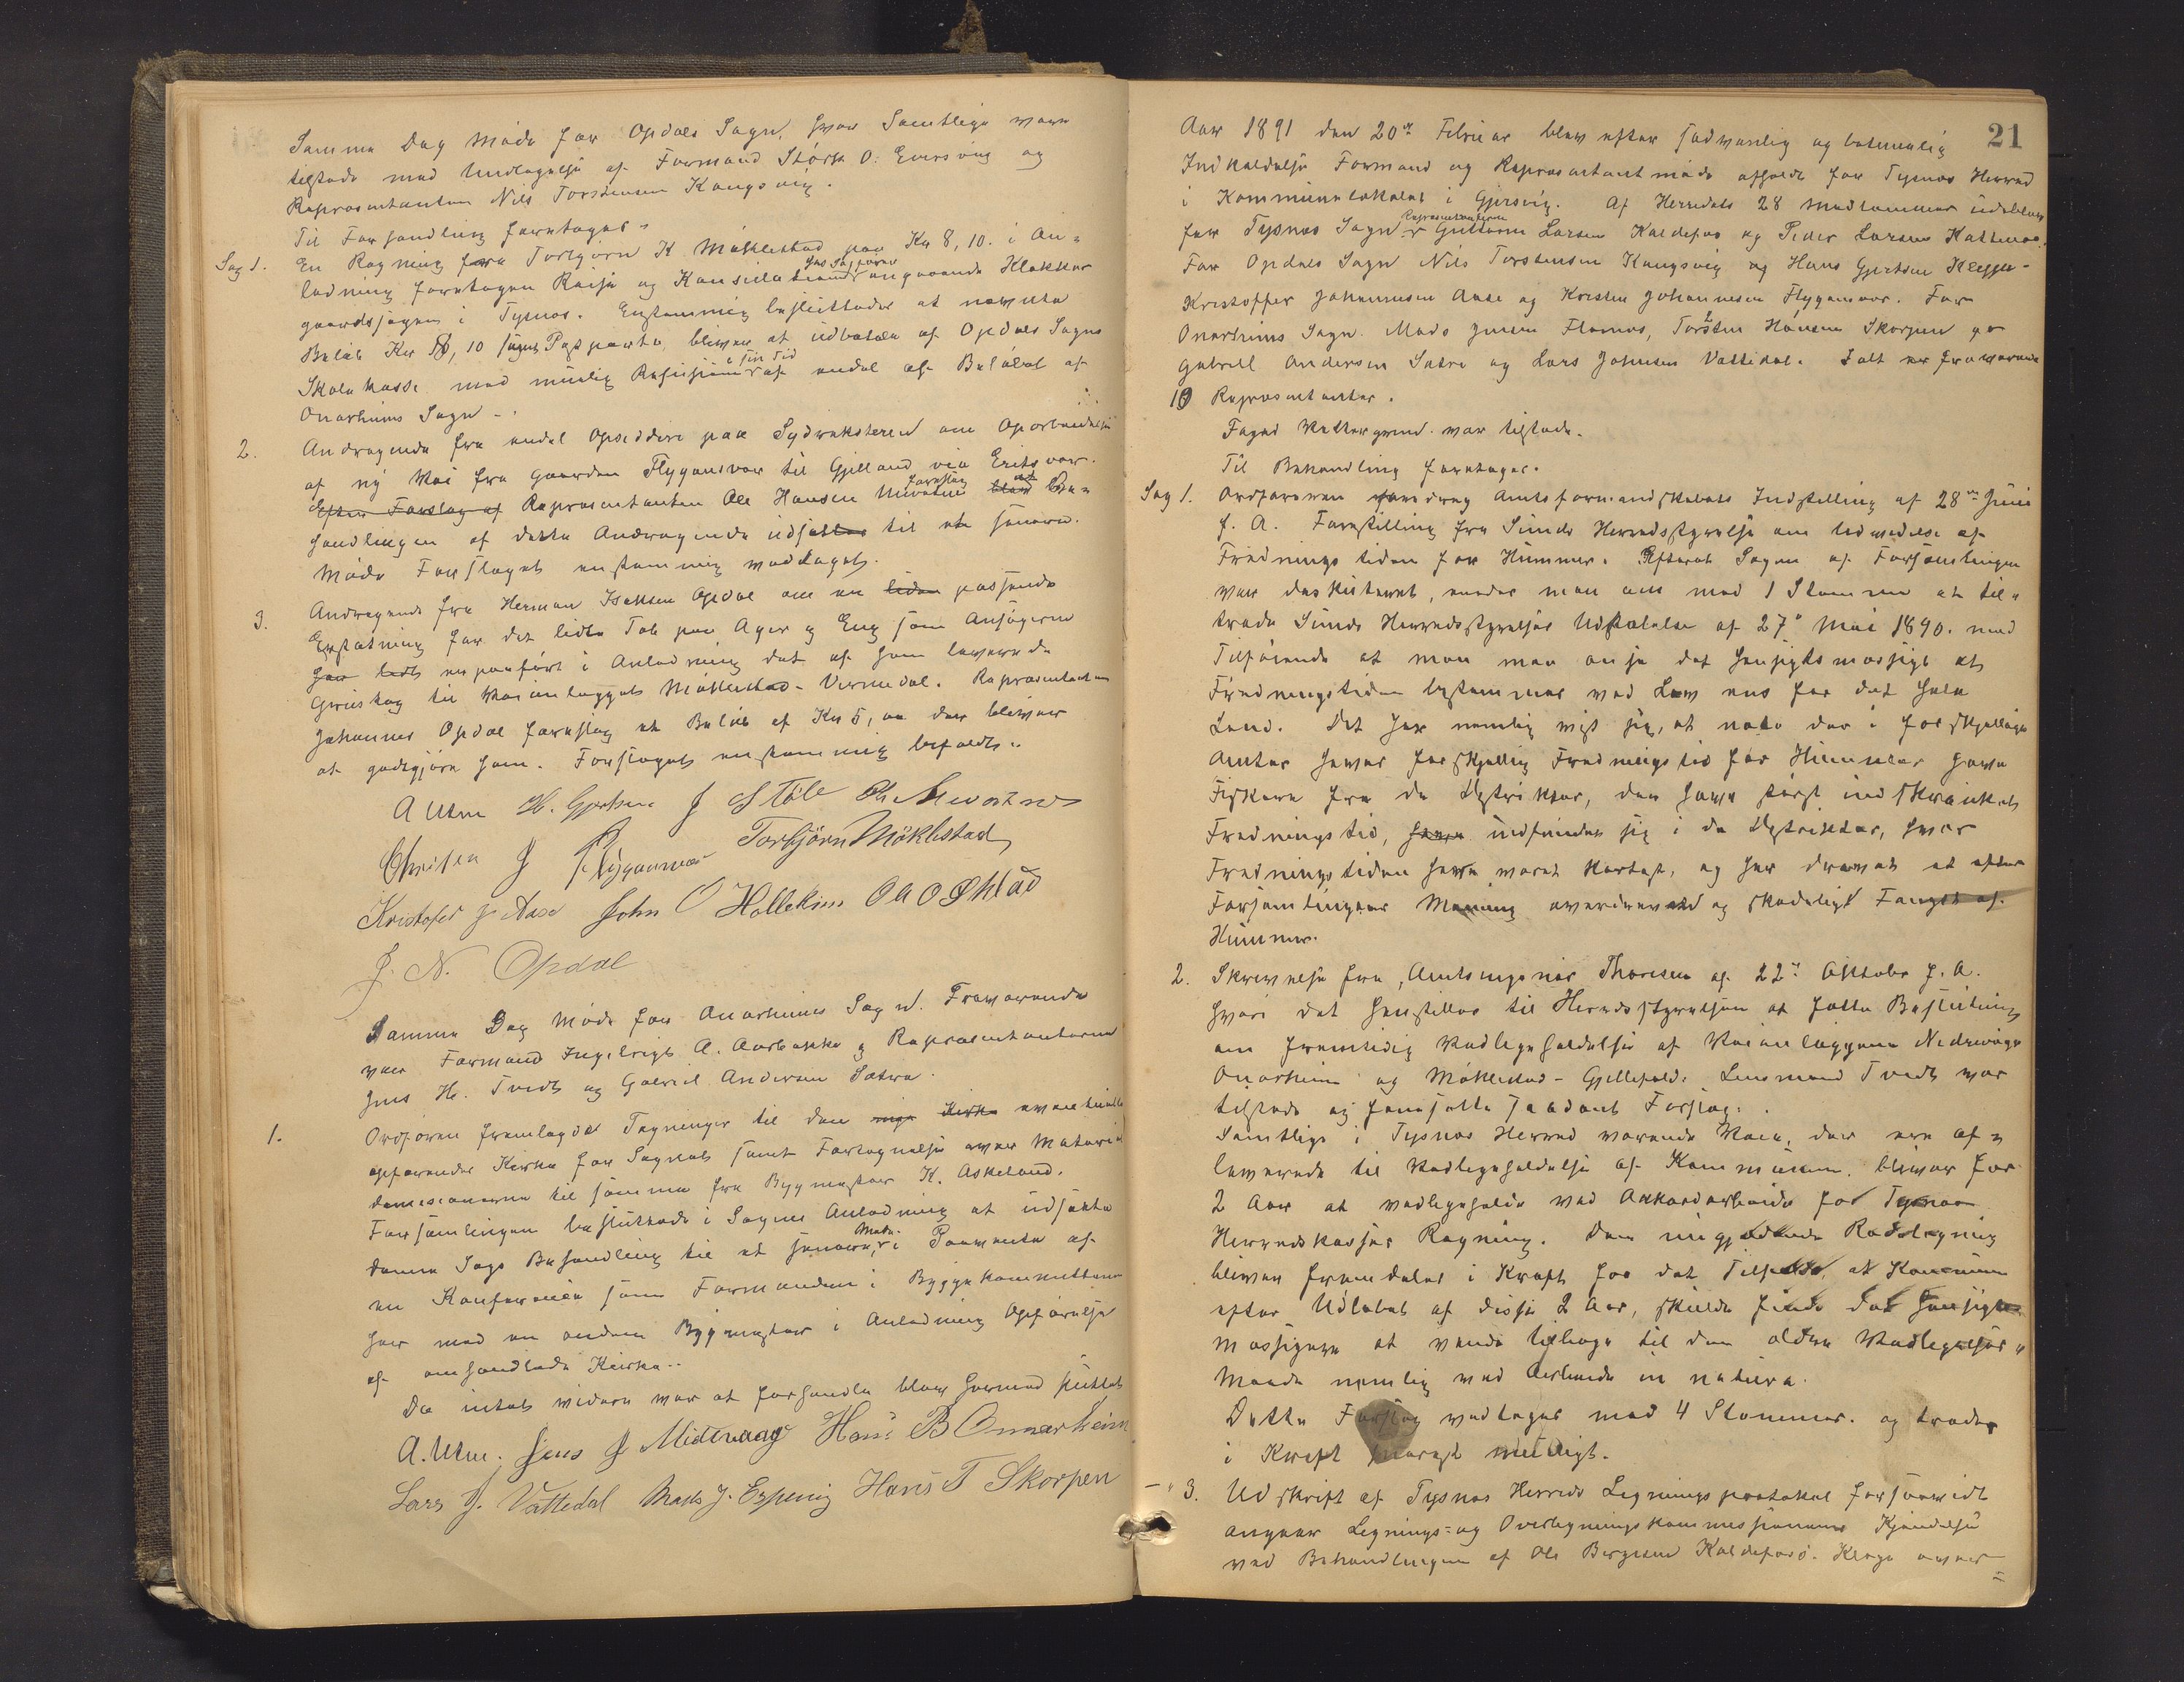 Samme Dag Møde for Opdals Sogn, hvor Samtlige vare
tilstede med Undtagelse af Formand Störk O. Eversvig og
Repræsentanten Nils Torstensen Kongsvig.
Til Forhandling foretoges:
Sag 1. En Regning fra Torbjørn K Møklestad paa Kr 8,10. i An-
ledning foretagen Reise og Konsulation hos Sagfører angaaende Klokker
gaardssagen i Tysnæs. Enstemmig besluttedes at nævnte
Beløb Kr 8,10 bliver at udbetale af Opdals Sogns
Skolekasse med mulig Refusion i sin Tid af endel af Beløbet af
Onarheims Sogn -.
2. Andragende fra endel Opsiddere paa Sydvesteren om Oparbeidelse
af ny Vei fra Gaarden Flygansvær til Gjelland via Eritsvær.
Efter Forslag af Repræsentanten Ole Hansen foreslog at Be-
handlingen af dette Andragende udsættes til et senere
Møde Forslaget enstemmig vedtaget.
3. Andragende fra Herman Isaksen Opdal om en liden passende
Erstatning for det lidte Tab paa Ager og Eng som Ansøgeren
har lidt er paaført i Anledning det af ham leverede
Gruistag til Veianlægget Møklestad - Vernedal. Repræsentanten
Johannes Opdal foreslog et Beløb af Kr 5,00 der bliver
at godtgjøre ham. Forslaget enstemmig bifaldt.
A Uten H. Gjertsen J Støle
Christen J Flygansvær Torbjörn Möklestad
Kristofer J Aase John O Hollekim Ole O Öklad
J. N. Opdal
Samme Dag Møde for Onarheims Sogn. Fraværende
var Formand Ingebrigt A. Aarbakke og Repræsentanterne
Jens H. Tvedt og Gabriel Andersen Sætre.
1. Ordføren fremlagde Tegninger til den nye Kirke eventuelle
opførendes Kirke for Sognet samt Fortegnelse over Material
demesionerne til samme fra Bygmester K. Askeland.
Forsamlingen besluttede i Sagens Anledning at udsætte
denne Sags Behandling til et senere Møde, i Paavente af
en Konferense som Formanden i Byggekommitteen
har med en anden Bygmester i Anledning Opførelse
af omhandlede Kirke..
Da intet videre var at forhandle blev hermed sluttet
A. Uten. Jens J Midtvaag Hans B Onnarheim
Lars J. Vattedal Mads J. Espevig Hans T Skorpen
21
Aar 1891 den 20de Februar blev efter sedvanlig og betimelig
Indkaldelse Formand og Repræsentantmøde afholdt for Tysnæs Herred
i Kommunelokalet i Gjersvig. Af Herredets 28 Medlemmer udeblev
for Tysnæs Sogn Repræsentanterne Guttorm Larsen Kaldefos og Peder Larsen Hattenæs.
For Opdals Sogn Nils Torstensen Kongsvig og Hans Gjertsen
Kristoffer Johannesen Aase og Kristen Johannesen Flygansvær. For
Onarheims Sogn. Mads Jensen Flornæs, Torsten Hansen Skorpen og
Gabriell Andersen Sætre og Lars Johnsen Vattedal. I alt er fraværende
10 Repræsentanter.
Foged Vettergrend var tilstede.
Til Behandling foretoges.
Sag 1. Ordføreren foredrag Amtsformandskabets Indstilling af 28de Juni
f. A. Forestilling fra Sunds Herredsstyrelse om Udvidelse af
Fredningstiden for Hummer. Efterat Sagen af Forsamlingen
var deskuteret, enedes man om med 1 Stemme at til-
træde Sunds Herredsstyrelses Udtalelse af 27de Mai 1890. med
Tilføiende at man maa anse det hensigtsmæssigt at
Fredningstiden bestemmes ved Lov ens for det hele
Land. Det har nemlig vist sig, at naar der i forskjellige
Amter haves forskjellig Fredningstid for Hummer have
Fiskere fra de Distrikter, der have størst indskrænket
Fredningstid, have indfundet sig i de Distrikter, hvor
Fredningstiden have været kortest, og har drevet et efter
Forsamlingens Mening overdrevent og skadeligt Fangst af
Hummer.
2. Skrivelse fra Amtsingeniør Thoresen af 22de Oktober f. A.
hvori det henstilles til Herredsstyrelsen at fatte Beslutning
om fremtidig Vedligeholdelse af Veianlæggene Nedrevaage
Onarheim og Møklestad - Gjellefald. Lensmand Tvedt var
tilstede og fremsatte saadant Forslag.
Samtlige i Tysnæs Herred værende Veie, der ere af-
leverede til Vedligeholdelse af Kommunen, bliver for
2 Aar at vedligeholde ved Akkordarbeide for Tysnæs
Herredskasses Regning. Den nugjældende Rodelægning
bliver fremdeles i Kraft for det Tilfælde, at Kommunen
efter Udløbet af disse 2 Aar, skulde finde det hensigts-
mæssigere at vende tilbage til den ældre Vedligeholds-
Maade nemlig ved Arbeide in natura.
Dette Forslag vedtoges med 4 Stemmer. og træder
i Kraft snarest muligt.
3. Udskrift af Tysnæs Herreds Ligningsprotokol forsaavidt
angaar Lignings- og Overligningskommissionens Kjendelse
ved Behandlingen af Ole Bergesen Kaldefos. Klage over